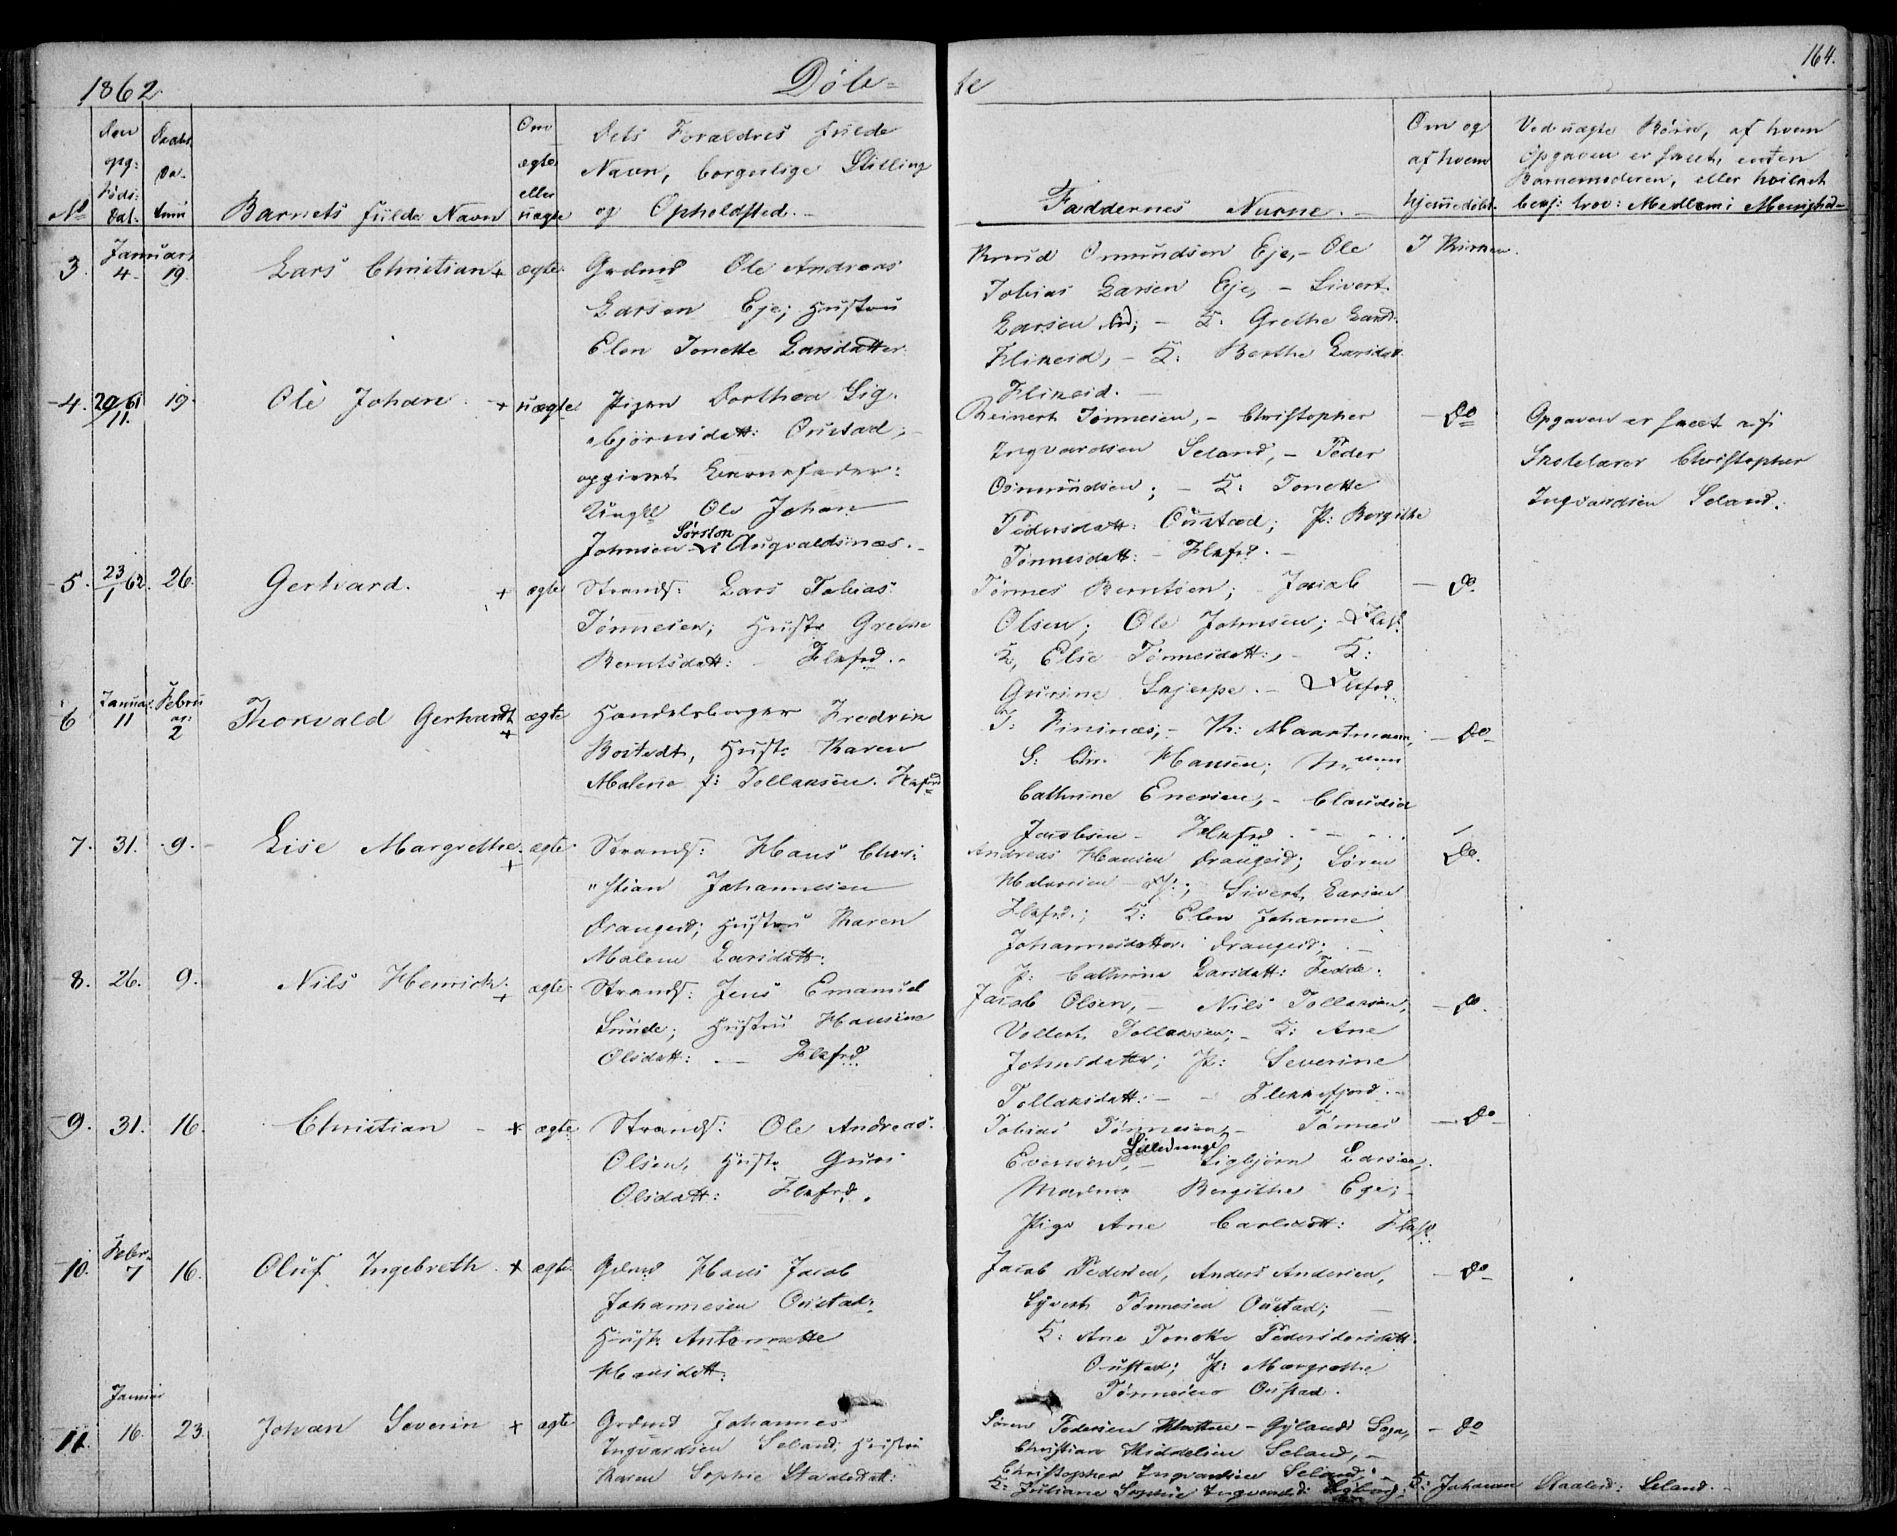 1862.
Døb-
te
164.
No
Den opg: Føds: Dat.
Daabs Da- tum
Barnets fulde Navn
Om ægte eller uægte
Dets Forældres fulde
Navn, borgerlige Stilling
og Opholdsted. -
Faddernes Navne. -
Om og af hvem hjemmedøbt
Ved uægte Børn, af hvem
Opgaven er skeet, enten
Barnemoderen, eller hvilket
3. Januar 4- 19. Lars Christian + ægte
Grdmd Ole Andreas
Larsen Eje; Hustru
Elen Tonette Larsdatter
Knud Omundsen Eje, - Ole
Tobias Larsen Eje, - Sivert
Larsen
K: Grethe
Flikeid, - K: Berthe Larsdatt
Flikeid.
I Kirken.
4. 20/11 61 19. Ole Johan. + uægte
Pigen Dorthea Sig-
bjørnsdatt: Oustad; -
opgivet Barnefader:
Ungkl Ole Johan
Johnsen Sørston i Augvaldsnæs. -
Reinert Tønnesen, - Christopher
Ingvardsen Seland, - Peder
Osmundsen; - K: Tonette
Pedersdatt: Oustad; P: Bergithe
Tønnesdatt: - Flkfrd. -
- Do
Opgaven er skeet af
Skolelærer Christopher
Ingvardsen Seland.
5. 23/1 62. 26. Gerhard. + ægte
Strands: Lars Tobias
Tønnesen; Hustr Grethe
Berntsdatt: - Flkfrd. -
Tønnes Berntsen; Jacob
Olsen; Ole Johnsen; - Flkf.
K, Else Tønnesdatt:, - K:
Gurine Skjerpe. - Flkfrd.
- Do
6 Januar 11 Februar 2 Thorvald Gerhardt + ægte
Handelsborger Fredrik
Bostedt, Hustr Karen
Malene f: Tollaksen. Flkfrd
T: Finnæs, - Th: Maartmann,
S: Chr. Hansen;
Cathrine Enersen, - Claudia
Jacobsen - Flkfrd.
- Do -
7. 31. 9. Lise Margrethe. + ægte
Strands: Hans Chri-
"stian Johannesen
Drangeid; Hustru Karen
Malene Larsdatt:
Andreas Hansen Drangeid; Søren
Halvorsen; Sivert Larsen
Flkfrd.; K: Elen Johanne
Johannesdatter Drangeid;
P: Cathrine Larsdatt: Fedde.
Do.
8. 26. 9. Nils Henrick. + ægte
Strands: Jens Emanuel
Sunde; Hustru Hansine
Olsdatt: - Flkfrd
Jacob Olsen, - Nils Tollaksen,
Vollert Tollaksen; - K: Ane
Johnsdatter; P: Severine
Tollaksdatt: - - Flekkefjord. -
- Do.
9. 31. 16. Christian - + ægte
Strands: Ole Andreas
Olsen, Hustr Guri
Olsdatt: Flkfrd.
Tobias Tønnesen, - Tønnes
Evensen, - Lilledrange Sigbjørn Larsen,
Bergithe Ege; -
Pige Ane Carlsdatt: Flkf.
- Do -
10. Febr- 7 16. Oluf Ingebreth. + ægte
Grdmd Hans Jacob
Johannesen Oustad;
Hustr Antonette
Hansdatt.
Jacob Pedersen, Anders Andersen,
Sivert Tønnesen Oustad; -
K: Ane Tonette Pedersdatt.
Oustad; P: Margrethe
Tønnesen Oustad.
- Do -
11. Januar 16. 23. Johan Severin + ægte
Grdmd Johannes
Ingvardsen Seland; Hustru
Karen Sophie Staalesdatt:
Søren Pedersen - Gylands Sogn,
Christian Middelsen Seland, -
Christopher Ingvardsen Seland,
K: Juliane Sophie Ingvardsd: K: Johanne Staalesd: Seland. -
- Do